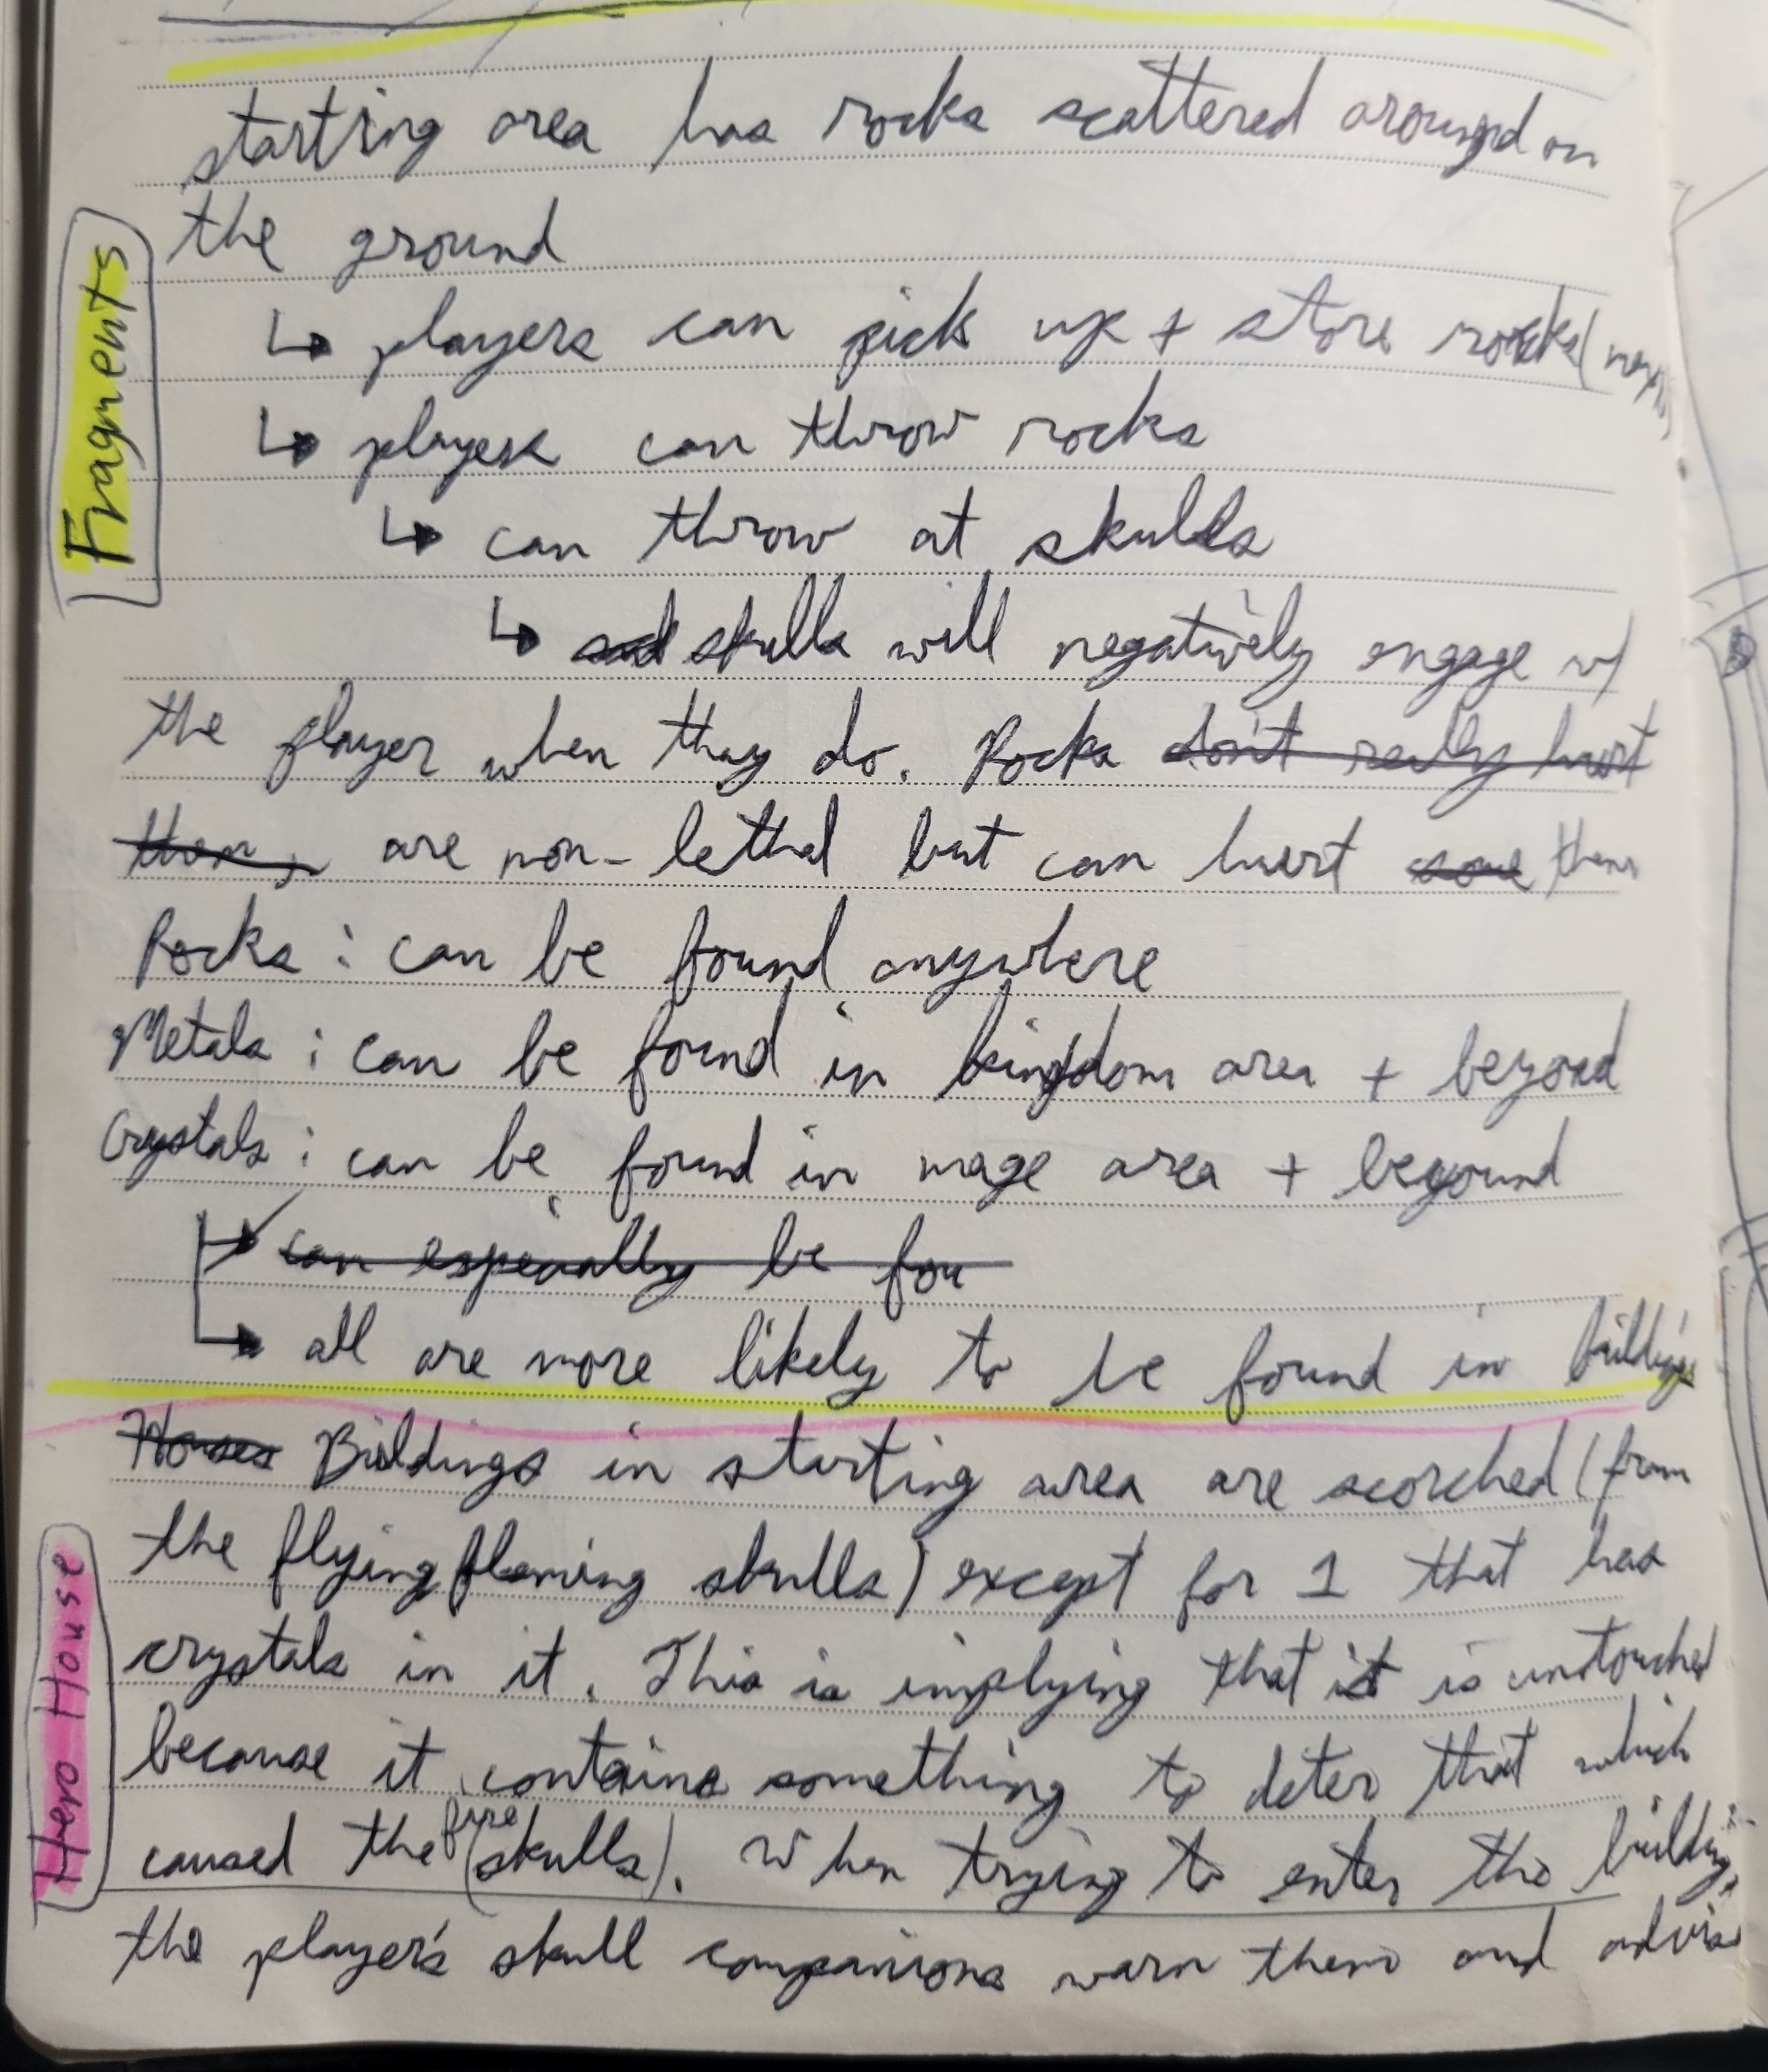 Fragments
starting area has rocks scattered around on
the ground
↳ players can pick up + store rocks (
↳ players can throw rocks
↳ can throw at skulls
↳ skulls will negatively engage w/
the player when they do. Rocks don't really hurt
them, are non-lethal but can hurt some them
Rocks : can be found anywhere
Metals : can be found in kingdom area + beyond
Crystals : can be found in mage area + beyond
↳ can especially be fou
↳ all are more likely to be found in buildings
Hero House
Houses Buildings in starting area are scorched (from
the flying flaming skulls) except for 1 that has
crystals in it. This is implying that it is untouched
because it contains something to deter that which
caused the fire (skulls). When trying to enter the building,
the player's skull companions warn them and advise